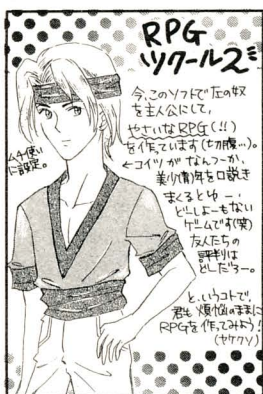 RPG
ツクール2
今、このソフトで左の奴
を主人公にして、
やさいなRPG(!!)
を作ています(切腹…)。
←コイツがなんつーか、
美少(青)年を口説き
まくるとゆー、
どーしよーもない
ゲームです(笑)
友人たちの
評判は
どーだろー。
と、いうコトで、
君も煩悩のままに
RPGを作てみよう!
(ヤケクソ)
ムチ使い
に設定。